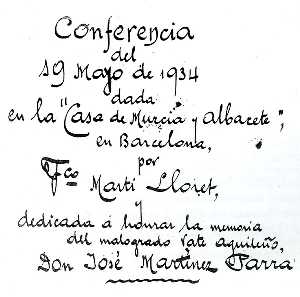 Conferencia
del
19 Mayo de 1934
dada
en la "Casa de Murcia y Albacete",
en Barcelona,
por
Fco Martí Lloret,
y
dedicada á honrar la memoria
del malogrado vate aguileño,
Don José Martínez Parra